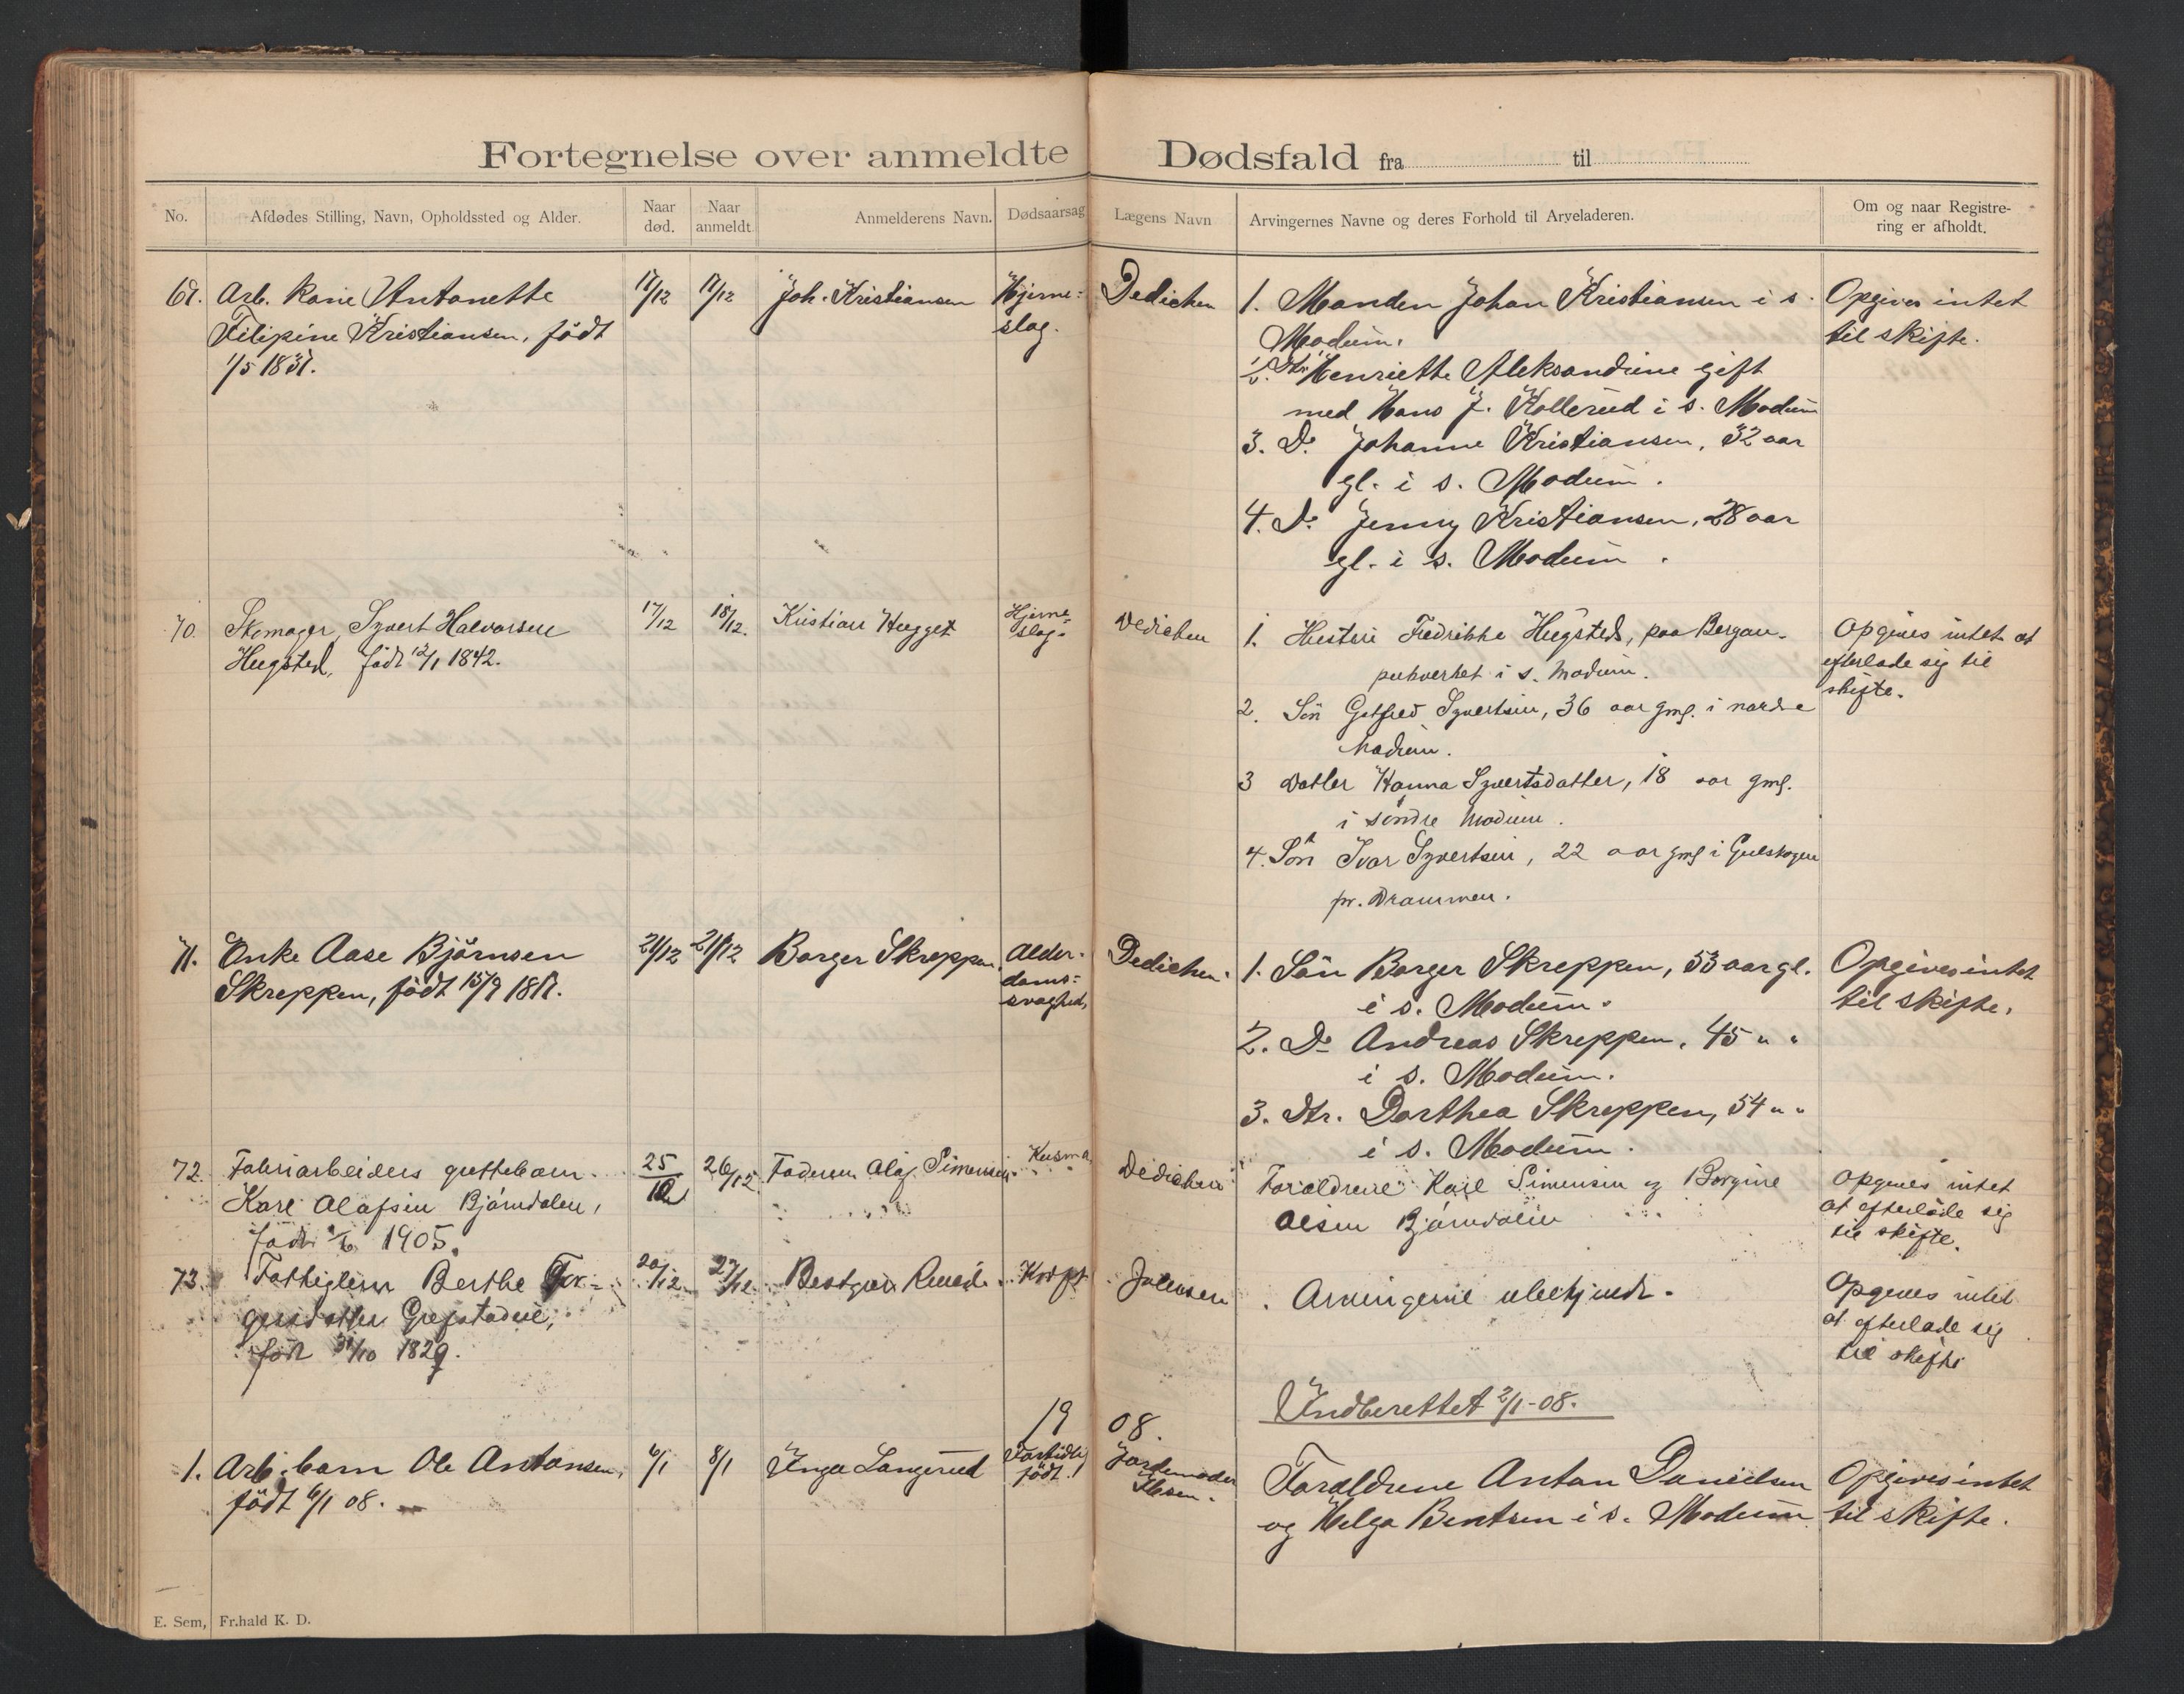 Fortegnelse over anmeldte Dødsfald fra til
No. Afdødes Stilling, Navn, Opholdssted og Alder. Naar død. Naar anmeldt. Anmelderens Navn. Dødsaarsag Lægens Navn Arvingernes Navne og deres Forhold til Arveladeren. Om og naar Registre-
ring er afholdt.
69. Arb. Kone Antonette
Filipine Kristiansen, född
1/5 1837.
17/12 17/12 Joh. Kristiansen Hjerne-
slag.
Dedichen
1. Manden Johan Kristiansen i s.
Modum.
2. Dtr. Henriette Aleksandrine gift
med Hans J. Kollerud i s. Modum
3. Do Johanne Kristiansen, 32 aar
gl. i s. Modum.
4. Do Jenny Kristiansen, 28 aar
gl. i s. Modum.
Opgives intet
til skifte.
70. Skomager Syvert Halvorsen
Hugsted, född 12/1 1842.
17/12 18/12. Kristian Hugget Hjerne-
slag.
Dedichen
1. Hustru Fredrikke Hugsted, paa Bergan-
i s. Modum.
2. Sön Gotfred Syvertsen, 36 aar gml. i nordre
Modum.
3 Datter Hanna Syvertsdatter, 18 aar gml.
i söndre Modum.
4. Sön Ivar Syvertsen, 22 aar gml i Gulskogen
pr. Drammen.
Opgives intet at
efterlade sig til
skifte.
71. Enke Aase Björnsen
Skreppen, född 15/9 1817.
21/12 21/12 Borger Skreppen. Alder-
doms-
svaghed,
Dedichen.
1. Sön Borger Skreppen, 53 aar gl.
i s. Modum.
2. Do Andreas Skreppen, 45 " "
i s. Modum.
3. Dtr. Dorthea Skreppen, 54 " "
i s. Modum.
Opgives intet
til skifte.
72. Fabrikarbeiders guttebarn
Karl Olafsen Björndalen,
född 1905.
25/12 26/12. Faderen Olaf Simensen
Dedichen
Forældrene Karl Simensen og Borgine
Olsen Björndalen
Opgives intet
at efterlade sig
til skifte.
73. Fattiglem Berthe Tor-
gersdatter Grefstadeie,
född 31/10 1829.
20/12. 27/12. Bestyrer Ruud.
Jalmsen
Arvingerne ubekjendt.
Opgives intet
at efterlade sig
til skifte
Indberettet 2/1-08.
19 08.
1. Arb. barn Ole Antonsen,
född 6/1 08.
6/1 8/1 Inga Langerud Fortidlig
född.
Jordemoder
Ilsen.
Forældrene Anton Danielsen
og Helga Bentsen i s. Modum
Opgives intet
til skifte.
E. Sem, Fr.hald K. D.